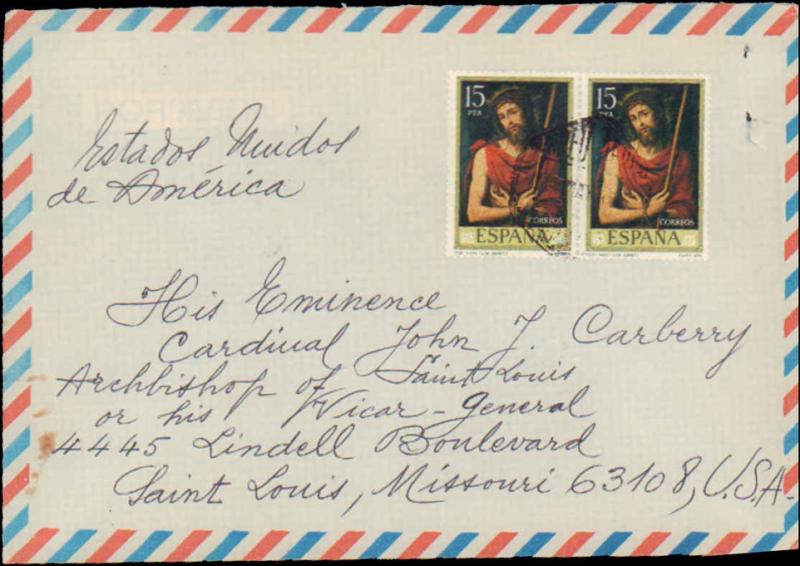 15
PTA
CORREOS
ESPAÑA
15
PTA
CORREOS
ESPAÑA
Estados Unidos
de América
His Eminence
Cardinal John J. Carberry
Archbishop of Saint Louis
or his Vicar-General
4445 Lindell Boulevard
Saint Louis, Missouri 63108, U.S.A.